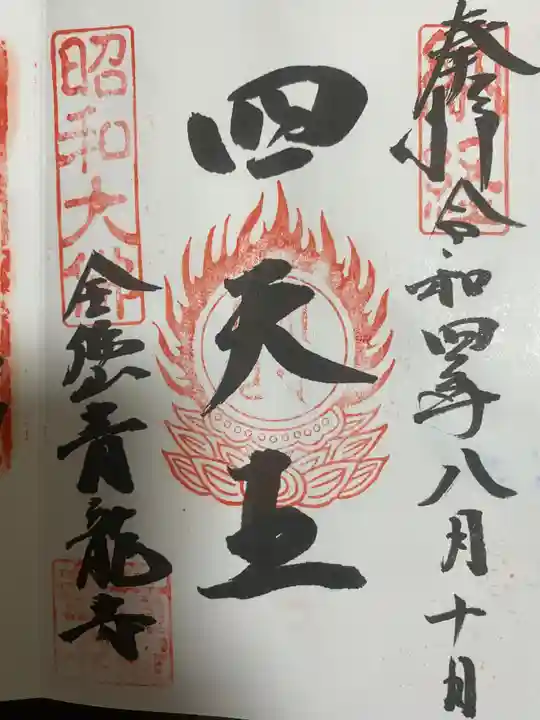 奉拝
令和四年八月十日
四天王
昭和大佛
全佛山青龍寺